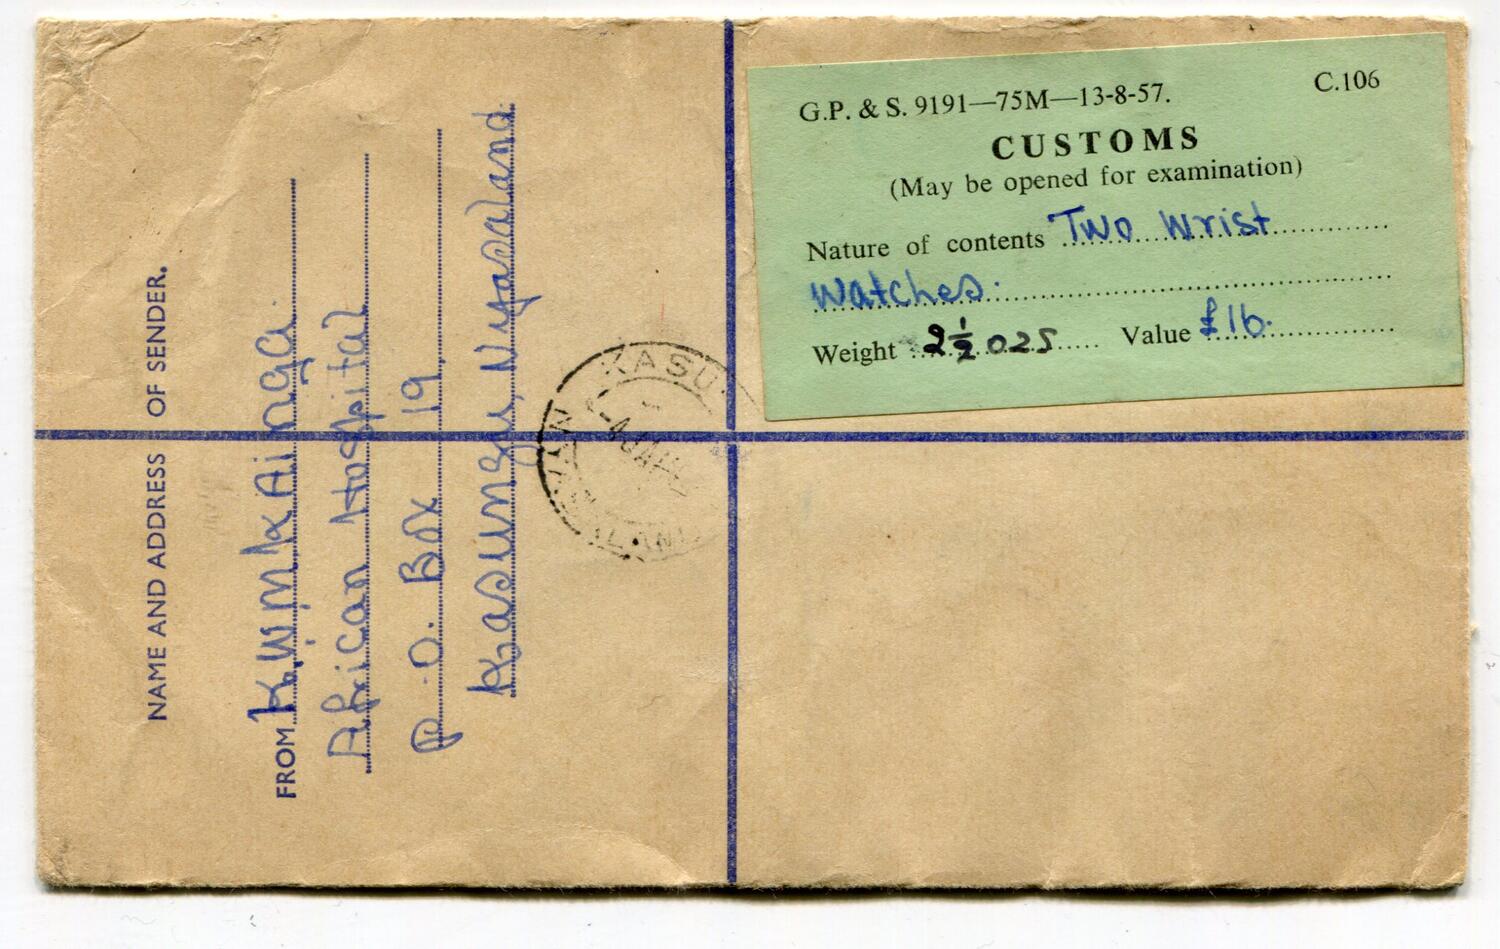 NAME AND ADDRESS OF SENDER.
FROM K.W.M. KAinga.
African Hospital
P.O. Box 19,
Kasungu, Nyasaland
G.P. & S. 9191—75M—13-8-57. C.106
CUSTOMS
(May be opened for examination)
Nature of contents Two Wrist
Watches.
Weight 2½ ozs Value £16.
KASU